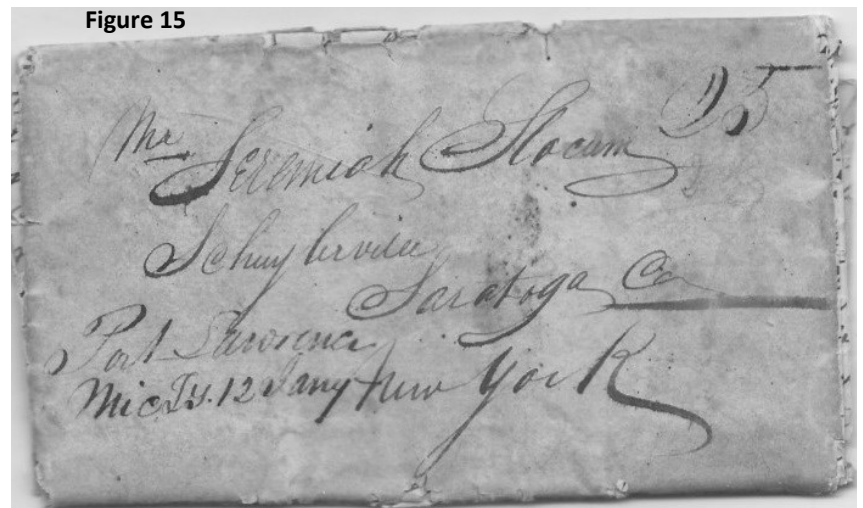 Figure 15
25
Mr Jeremiah Slocum
Schuylerville
Saratoga Co
Port Lawrence
Mic Ty. 12 Jany New York